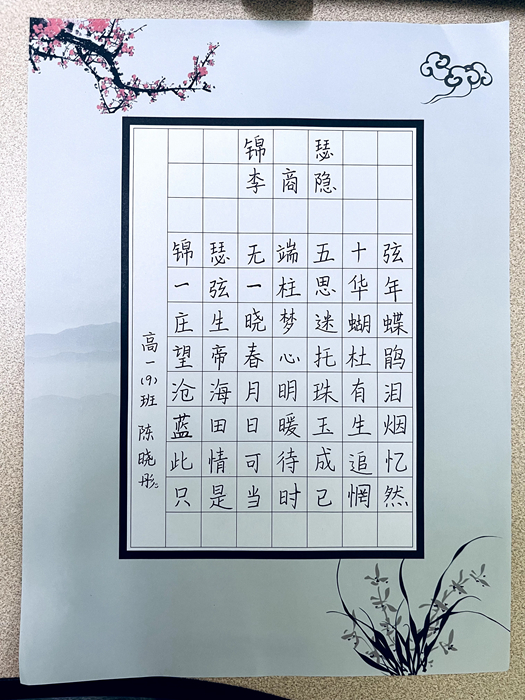 锦 瑟
李商隐
锦瑟无端五十弦
一弦一柱思华年
庄生晓梦迷蝴蝶
望帝春心托杜鹃
沧海月明珠有泪
蓝田日暖玉生烟
此情可待成追忆
只是当时已惘然
高一(9)班 陈晓彤